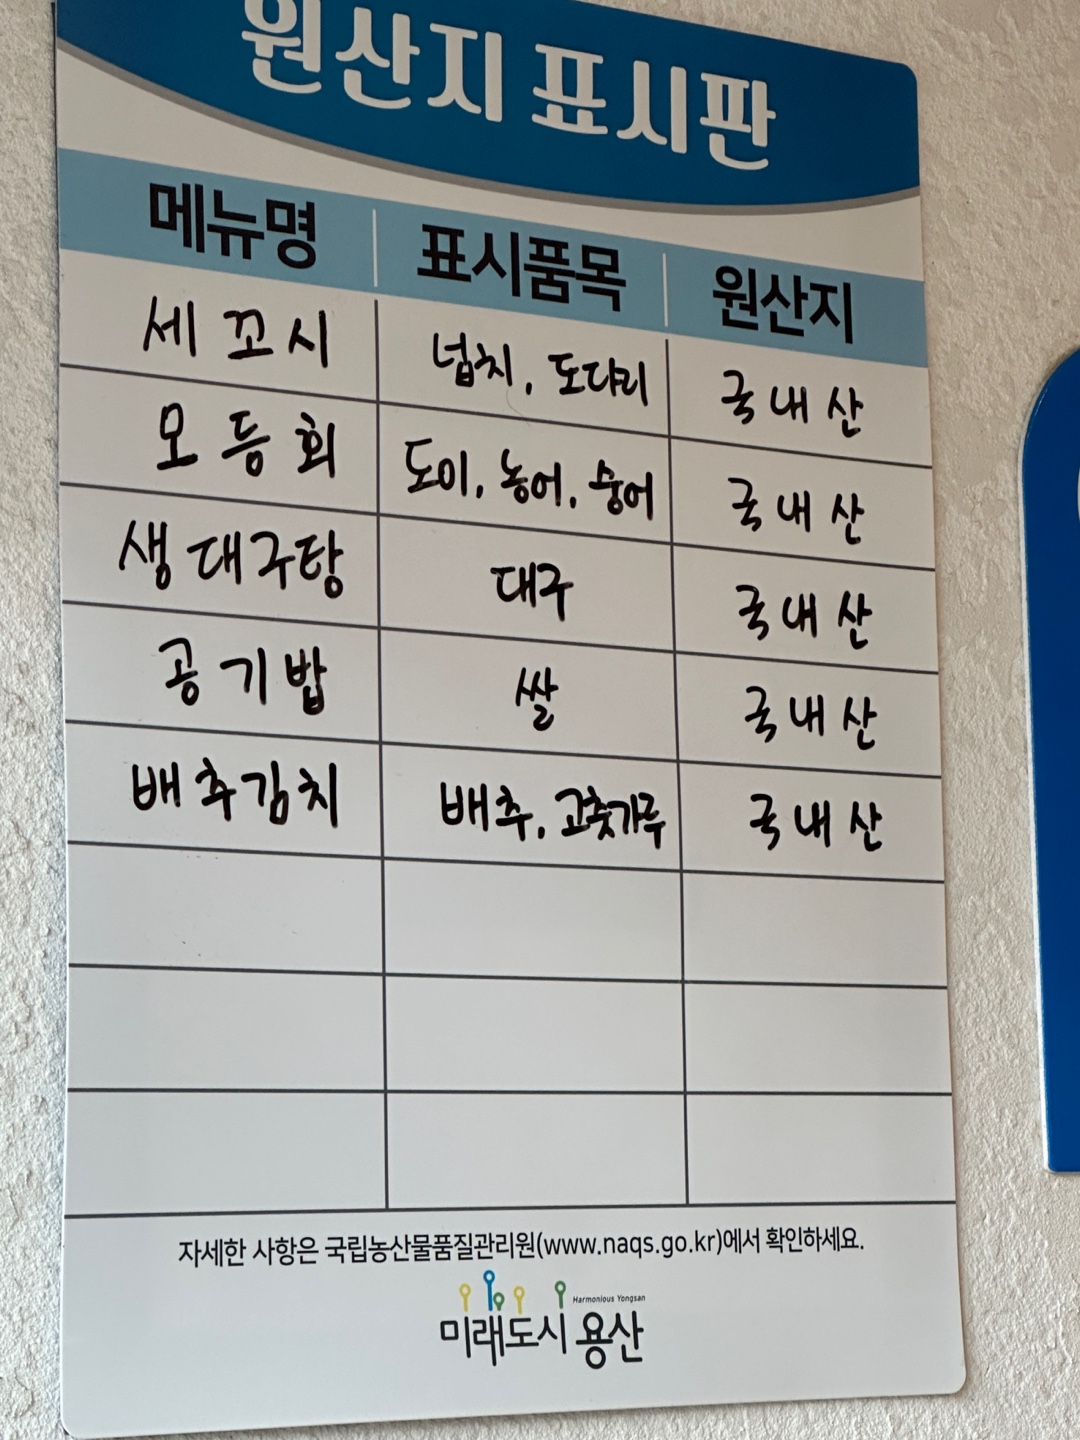 원산지 표시판
메뉴명 표시품목 원산지
세꼬시 넙치, 도다리 국내산
모듬회 도미, 농어, 숭어 국내산
생대구탕 대구 국내산
공기밥 쌀 국내산
배추김치 배추, 고춧가루 국내산
자세한 사항은 국립농산물품질관리원(www.naqs.go.kr)에서 확인하세요.
Harmonious Yongsan
미래도시 용산